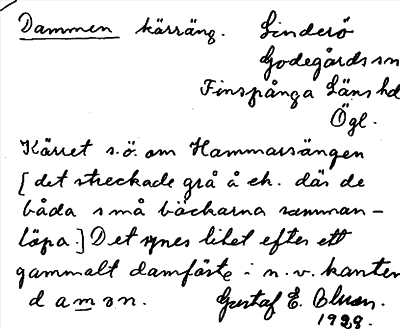 Dammen kärräng. Linderö
Godegårds sn
Finspånga Läns hd
Ögl.
Kärret s.ö. om Hammarsängen
[det streckade grå å ek. där de
båda små bäckarna samman-
löpa.] Det synes litet efter ett
gammalt damfäste i n.v. kanten
damən. Gustaf E. Olsson.
1928.